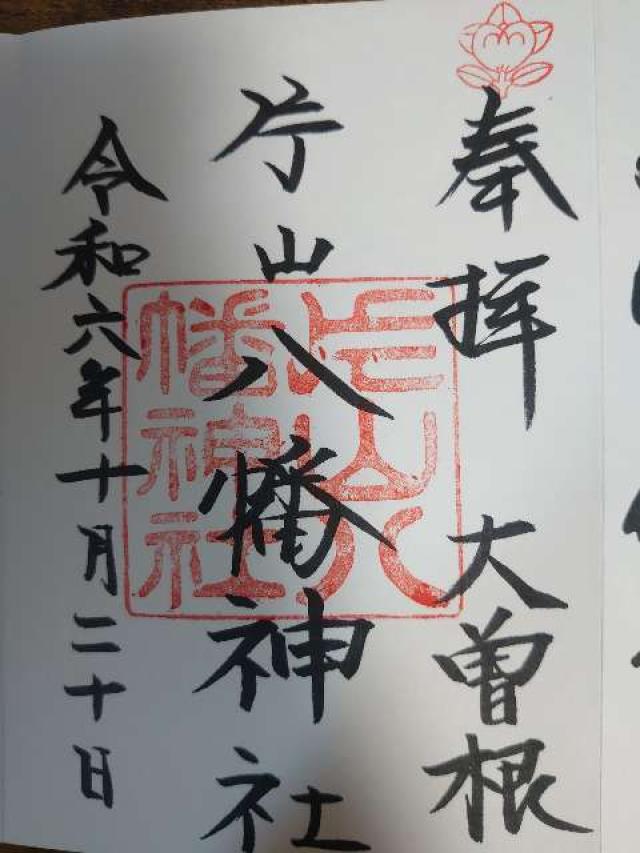 奉拝 大曽根
片山八幡神社
令和六年十月二十日
片山八
幡神社